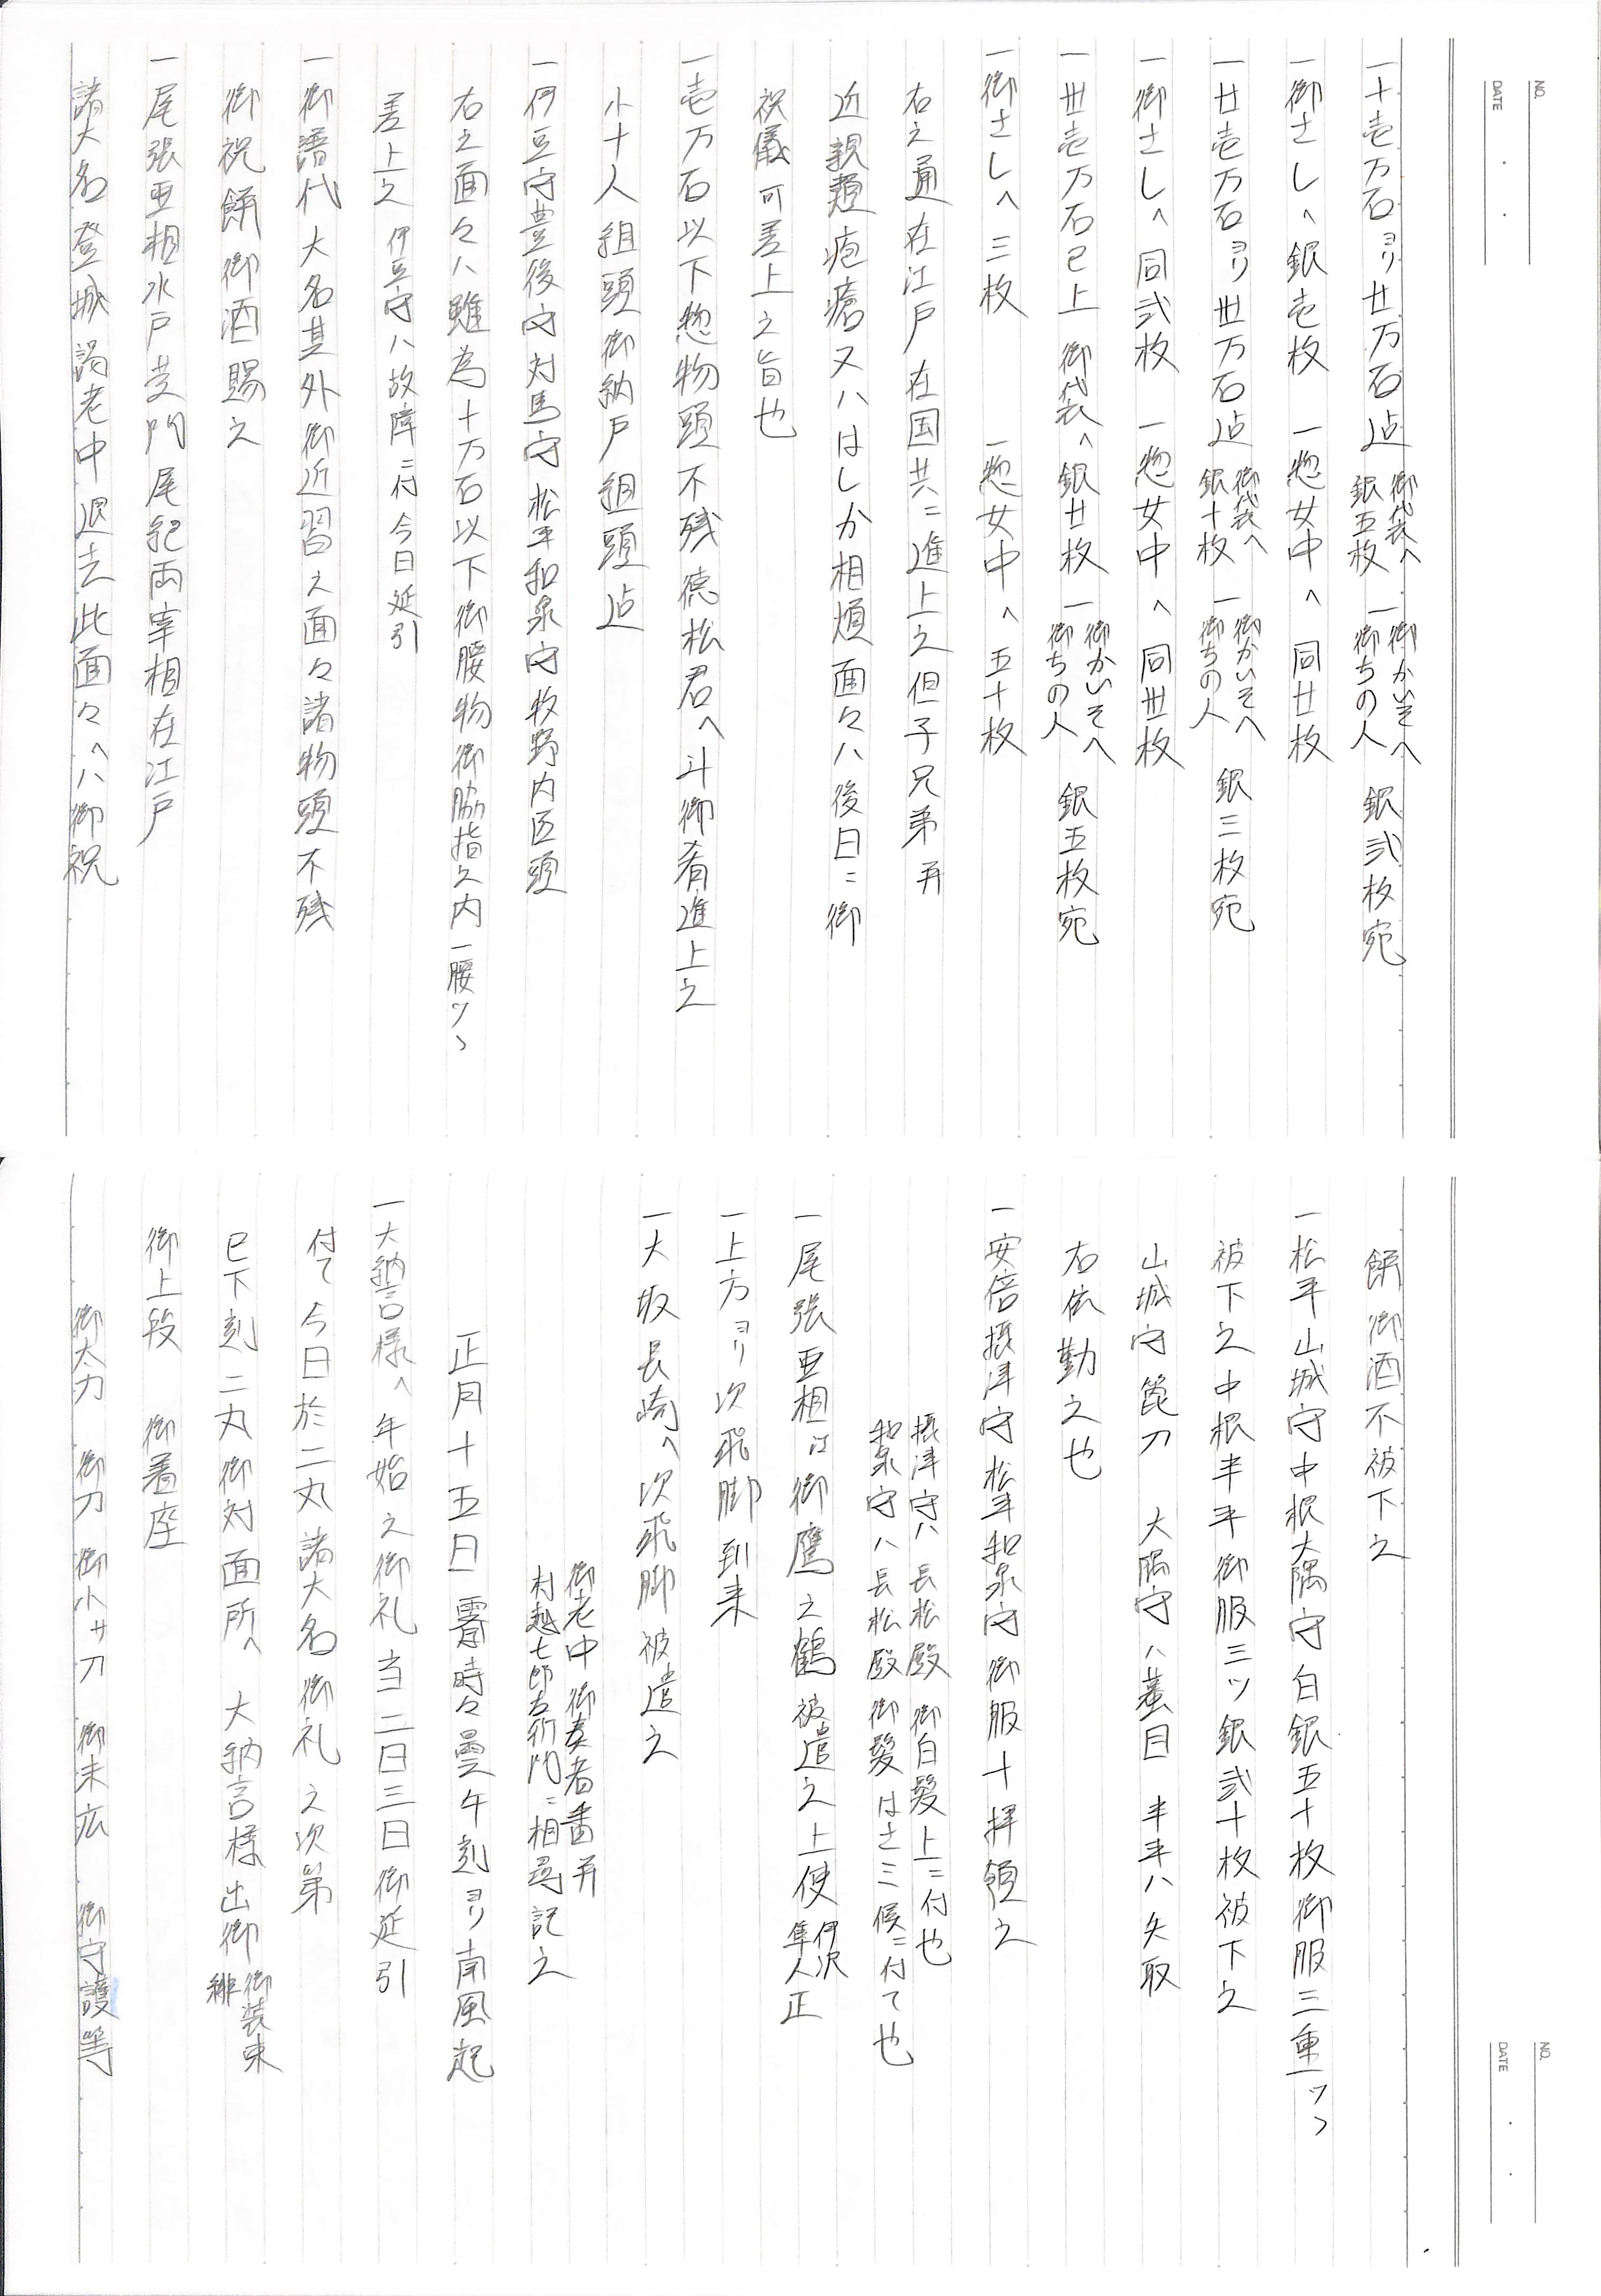 NO.
DATE
一十壱万石ヨリ廿万石迄 御袋へ銀五枚 一御かいそへ 一御ちの人 銀弐枚宛
一御さしへ銀壱枚 一惣女中へ同廿枚
一廿壱万石ヨリ丗万石迄 御袋へ銀十枚 一御かいそへ 御ちの人 銀三枚宛
一御さしへ同弐枚 一惣女中へ同丗枚
一丗壱万石已上 御袋へ銀廿枚 一御かいそへ 御ちの人 銀五枚宛
一御さしへ三枚 一惣女中へ五十枚
右之通在江戸在国共ニ進上之但子兄弟并
近親類疱瘡又ハはしか相煩面々ハ後日ニ御
祝儀可差上之旨也
一壱万石以下惣物頭不残徳松君へ斗御肴進上之
小十人組頭御納戸組頭迄
一伊豆守豊後守対馬守松平和泉守牧野内匠頭
右之面々ハ雖為十万石以下御腰物御脇指之内一腰ツヽ
差上之 伊豆守ハ故障ニ付今日延引
一御譜代大名其外御近習之面々諸物頭不残
御祝餅御酒賜之
一尾張亜相水戸黄門尾紀両宰相在江戸
諸大名登城謁老中退去此面々へハ御祝
NO.
DATE
餅御酒不被下之
一松平山城守中根大隅守白銀五十枚御服三重ツヽ
被下之中根半平御服三ツ銀弐十枚被下之
山城守箆刀 大隅守ハ蟇目 半平ハ矢取
右依勤之也
一安倍摂津守松平和泉守御服十拝領之
摂津守ハ長松殿御白髪上ニ付也
和泉守ハ長松殿御髪はさミ候ニ付て也
一尾張亜相江御鷹之鶴被遣之上使伊沢隼人正
一上方ヨリ次飛脚到来
一大坂長崎へ次飛脚被遣之
御老中御奏者番并
村越七郎左衛門ニ相尋記之
正月十五日 霽時々曇午刻ヨリ南風起
一大納言様へ年始之御礼当二日三日御延引
付て今日於二丸諸大名御礼之次第
巳下刻二丸御対面所へ 大納言様出御 御装束緋
御上段 御着座
御太刀 御刀 御小サ刀 御末広 御守護等